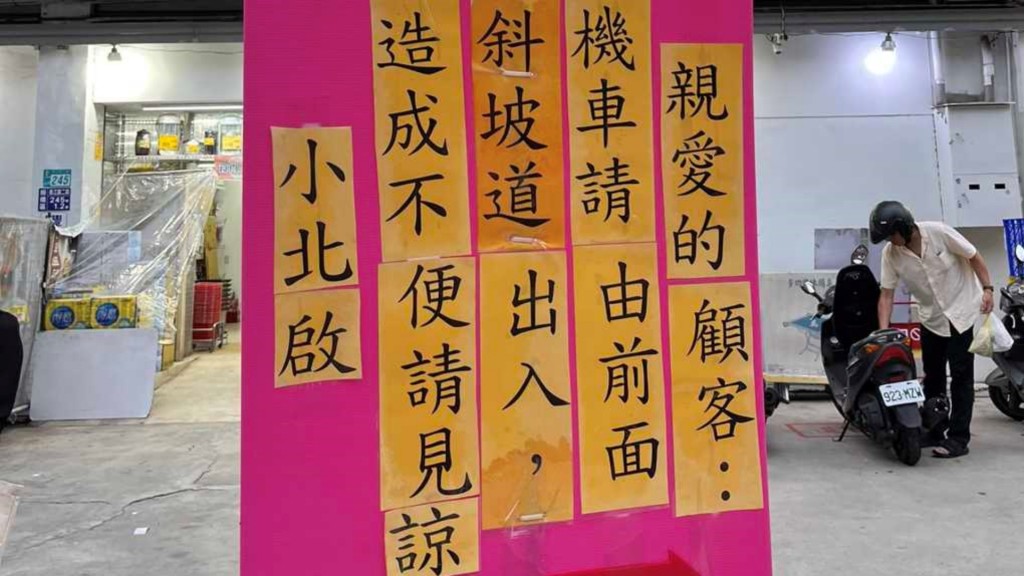 親愛的顧客:
機車請由前面
斜坡道出入,
造成不便請見諒
小北啟
245
923-MZW